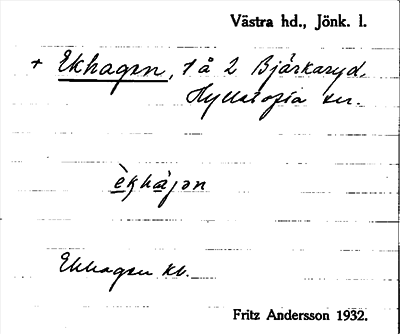 Västra hd., Jönk. l.
+ Ekhagen, 1 å 2 Bjärkaryd.
Hylletofta sn.
èkhàgen
Ekhagen kb.
Fritz Andersson 1932.